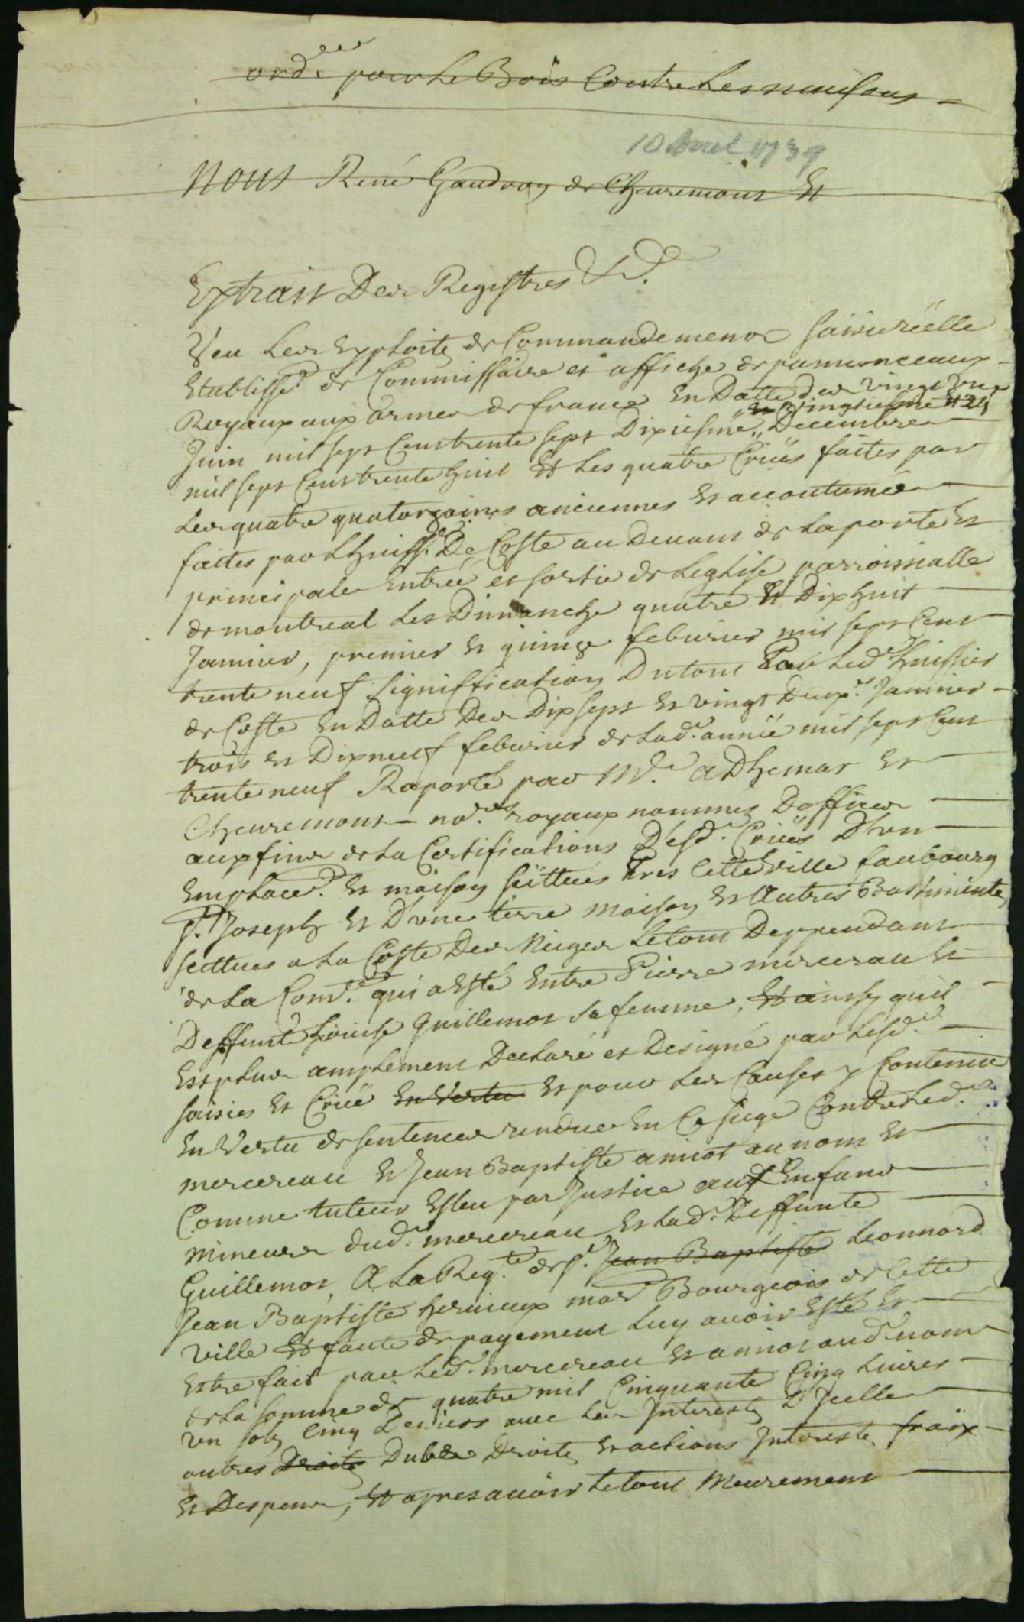 ordce pour Le Bois Contre Les
10 Avril 1739
Nous René Gaudron de Chevremont Et
Extrait Des Registres &ca.
Veu Les Exploits de Commandement Saisie réelle
Etablissemt de Commissaire et affiche de panonceaux
Royaux aux armes de france En Datte des vingt
En Vingtiesme et 24
Juin mil sept Cent trente sept Dixiesme Decembre
mil sept Cent trente huit Et Les quatre Criées faites par
Les quatre quatorzaines anciennes Et accoutumée
faites par L'huissr. De Coste au Devant de La porte Et
principale Entrée et sortie de Leglise parroissialle
de montreal Les Dimanche quatre Et Dix huit
Janvier, premier Et quinze feburier mil sept Cent
trente neuf Signiffication Du tout Par Led. huissier
de Coste En Datte Des Dix sept Et vingt deux. Janvier
trois Et Dix neuf feburier de Lad. année mil sept Cent
trente neuf Raporté par Me. adhemar Et
Chevremont nores. royaux nommés D'office
aux fins de La Certification Desd. Criées D'un
Emplacemt. Et maison scittués Pres Cette Ville faubourg
St. Joseph Et D'une terre maison Et Autres Bastiments
scittués a La Coste Des Neiges Le tout Deppendant
de La Comté. qui a Esté Entre Pierre mercereau Et
Deffunte Louise Guillemot sa femme, Et ainsy quil
Est plus amplement Declaré et Designé par Lesd.
saisies Et Criée En Vertu Et pour Les Causes y Contenue
En Vertu de sentences rendues En Ce siege Contre Led.
mercereau Et Jean Baptiste amiot au nom Et
Comme tuteur Esleu par Justice aux Enfans
Mineurs dud. mercereau Et Lad. Deffunte
Guillemot, A La Reqte. de Sr. Jean Baptiste Leonnard
Jean Baptiste hervieux mard Bourgeois de Cette
Ville Et faute de payement Luy avoir Esté Et
Estre fait par Led. mercereau Et amiot aud. nom
de La somme de quatre mil Cinquante Cinq Livres
un sols Cinq Deniers avec Les Interests D'Icelle
autres Droits Dubs Droits Et actions Interests fraix
Et Despens, Et apres avoir Le tout Meurement